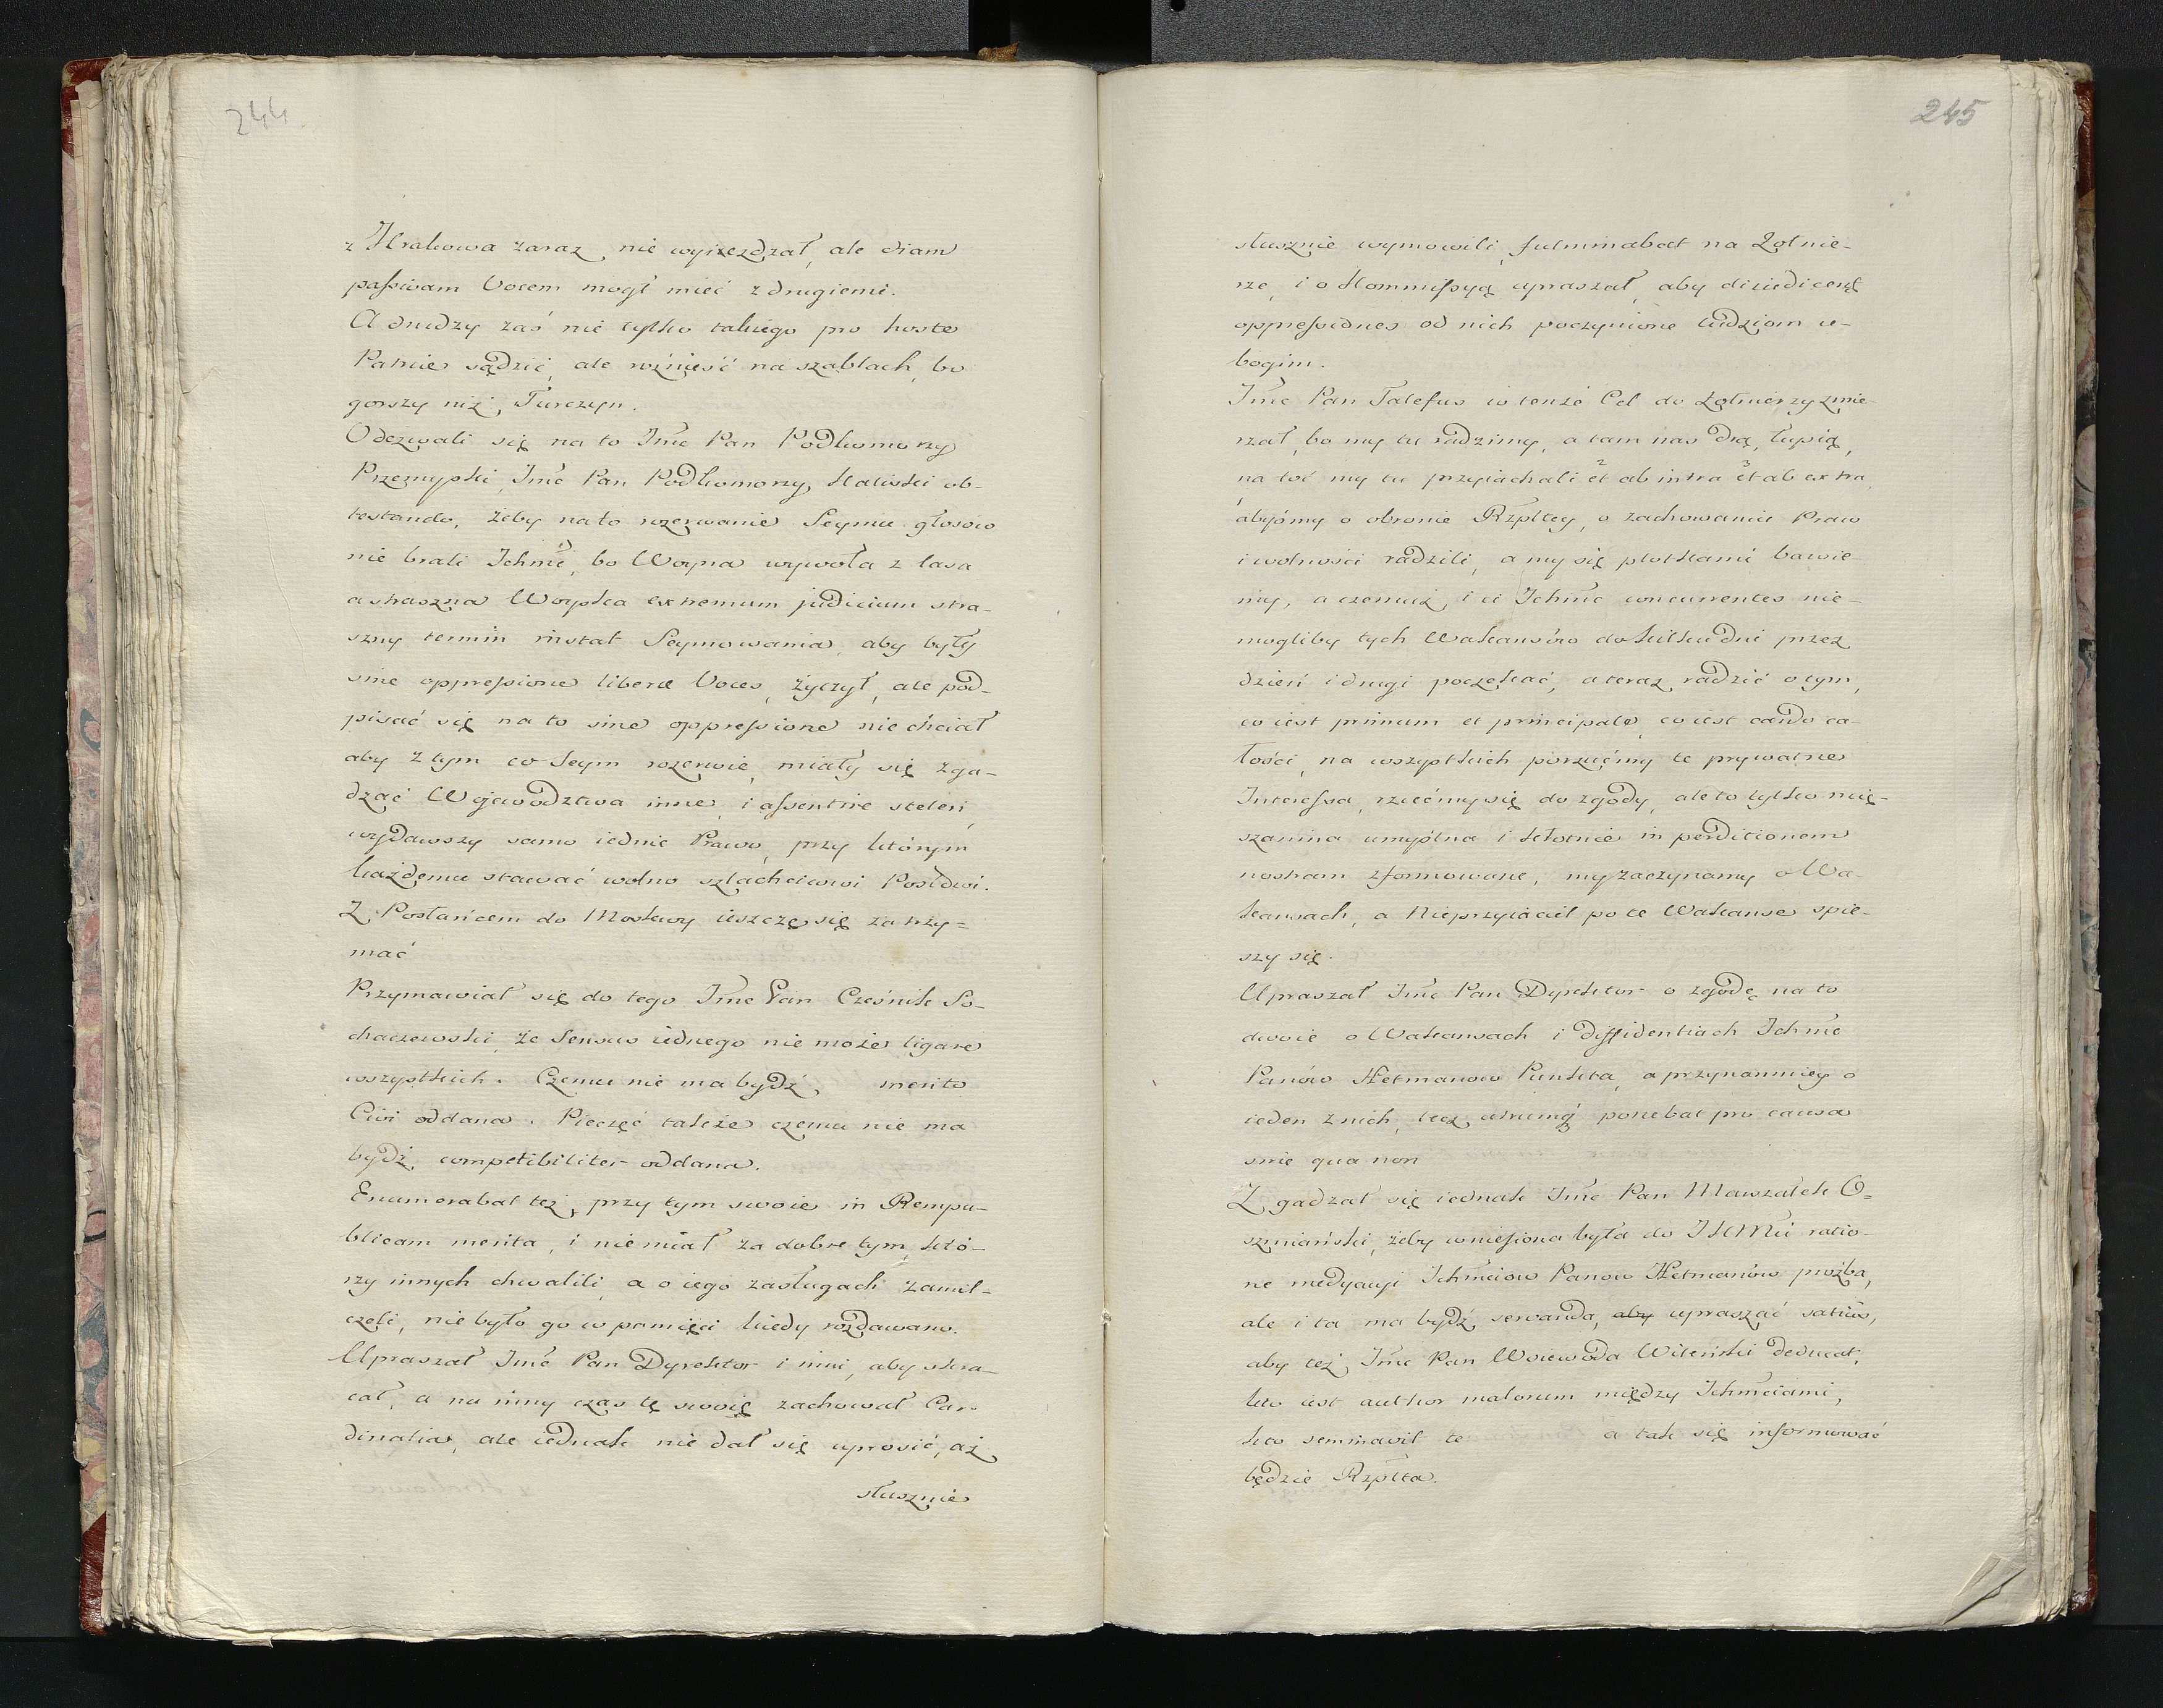 244
z Krakowa zaraz nie wyjezdzał, ale etiam
passivam Vocem mogł mieć z drugiemi.
A drudzy zaś nie tylko takiego pro hoste
Patriæ sądzić, ale roznieść na szablach, bo
gorszy niż Turczyn.
Odezwali się na to Imć Pan Podkomorzy
Przemyski, Imć Pan Podkomorzy Haliski ob-
testando, żeby na to rozerwanie Seymu głosow
nie brali Ichmć, bo Woyna wywoła z lasa
a straszna Woyska extremum judicium stra-
szny termin instat Seymowania, aby były
sine oppressione liberæ Voces, życzył, ale pod-
pisać się na to sine oppressione nie chciał
aby z tym co Seym rozerwie, miały się zga-
dzać Wojewodztwa inne, i assentire sceleri,
wydawszy samo iednie Prawo, przy ktorym
każdemu stawać wolno szlachciowi Posłowi.
Z Posłańcem do Moskwy ieszcze się zatrzy=
mać
Przymawiał się do tego Imć Pan Cześnik So-
chaczewski, że Sensus iednego nie może ligare
wszystkich. Czemu nie ma bydź merito
Civi oddana. Pieczęć także czemu nie ma
bydź, competibiliter oddana.
Enumerabat też, przy tym swoie in Rempu-
blicam merita, i niemiał za dobre tym, któ-
rzy innych chwalili, a o iego zasługach zamil-
czeli, nie było go w pamięci kiedy rozdawano.
Upraszał Imć Pan Dyrektor i inni, aby skra-
cał, a na inny czas tę swoię zachował Car-
dinalia, ale iednak nie dał się uprosić, aż
słusznie
245
słusznie wymowili, fulminabat na Żołnie-
rze, i o Kommissyą upraszał, aby
oppressiones od nich poczynione ludziom u-
bogim.
Imć Pan Telefus w tenże Cel do Żołnierzy zmie-
rzał, bo my tu radzimy, a tam nas drą, łupią,
na toć my tu przyiachali 2 et ab intra 3 et ab extra,
abyśmy o obronie Rzpltey, o zachowaniu Praw
i wolności radzili, a my się plotkami bawie-
my, a czemuż, i ci Ichmć concurrentes nie-
mogliby tych Wakansów do kilku dni przez
dzień i drugi poczekać, a teraz radzić o tym,
co iest primum et principale, co iest cardo ca-
łości, na wszystkich porzućmy te prywatne
Interessa, rzućmy się do zgody, ale to tylko mię-
szanina umyślna i kłotnie in perditionem
nostram zformowane, my zaczynamy o Wa-
kansach, a Nieprzyiaciel po te Wakanse spie-
szy się.
Upraszał Imć Pan Dyrektor o zgodę na to
dwoie o Wakansach i Diffidentiach Ichmć
Panów Hetmanow Punkta, a przynanmiey o
ieden z nich, lecz utrumq; ponebat pro causa
sine qua non
Zgadzał się iednak Imć Pan Marszałek O=
szmiański, żeby wniesiona była do JKMci ratio-
ne medyacyi Ichmciow Panow Hetmanów proźba,
ale i ta ma bydź servanda, aby upraszać satius,
aby też, Imć Pan Woiewoda Wileński deducat,
kto iest author malorum między Ichmciami,
kto seminavit te a tak się informować
będzie Rzplta.